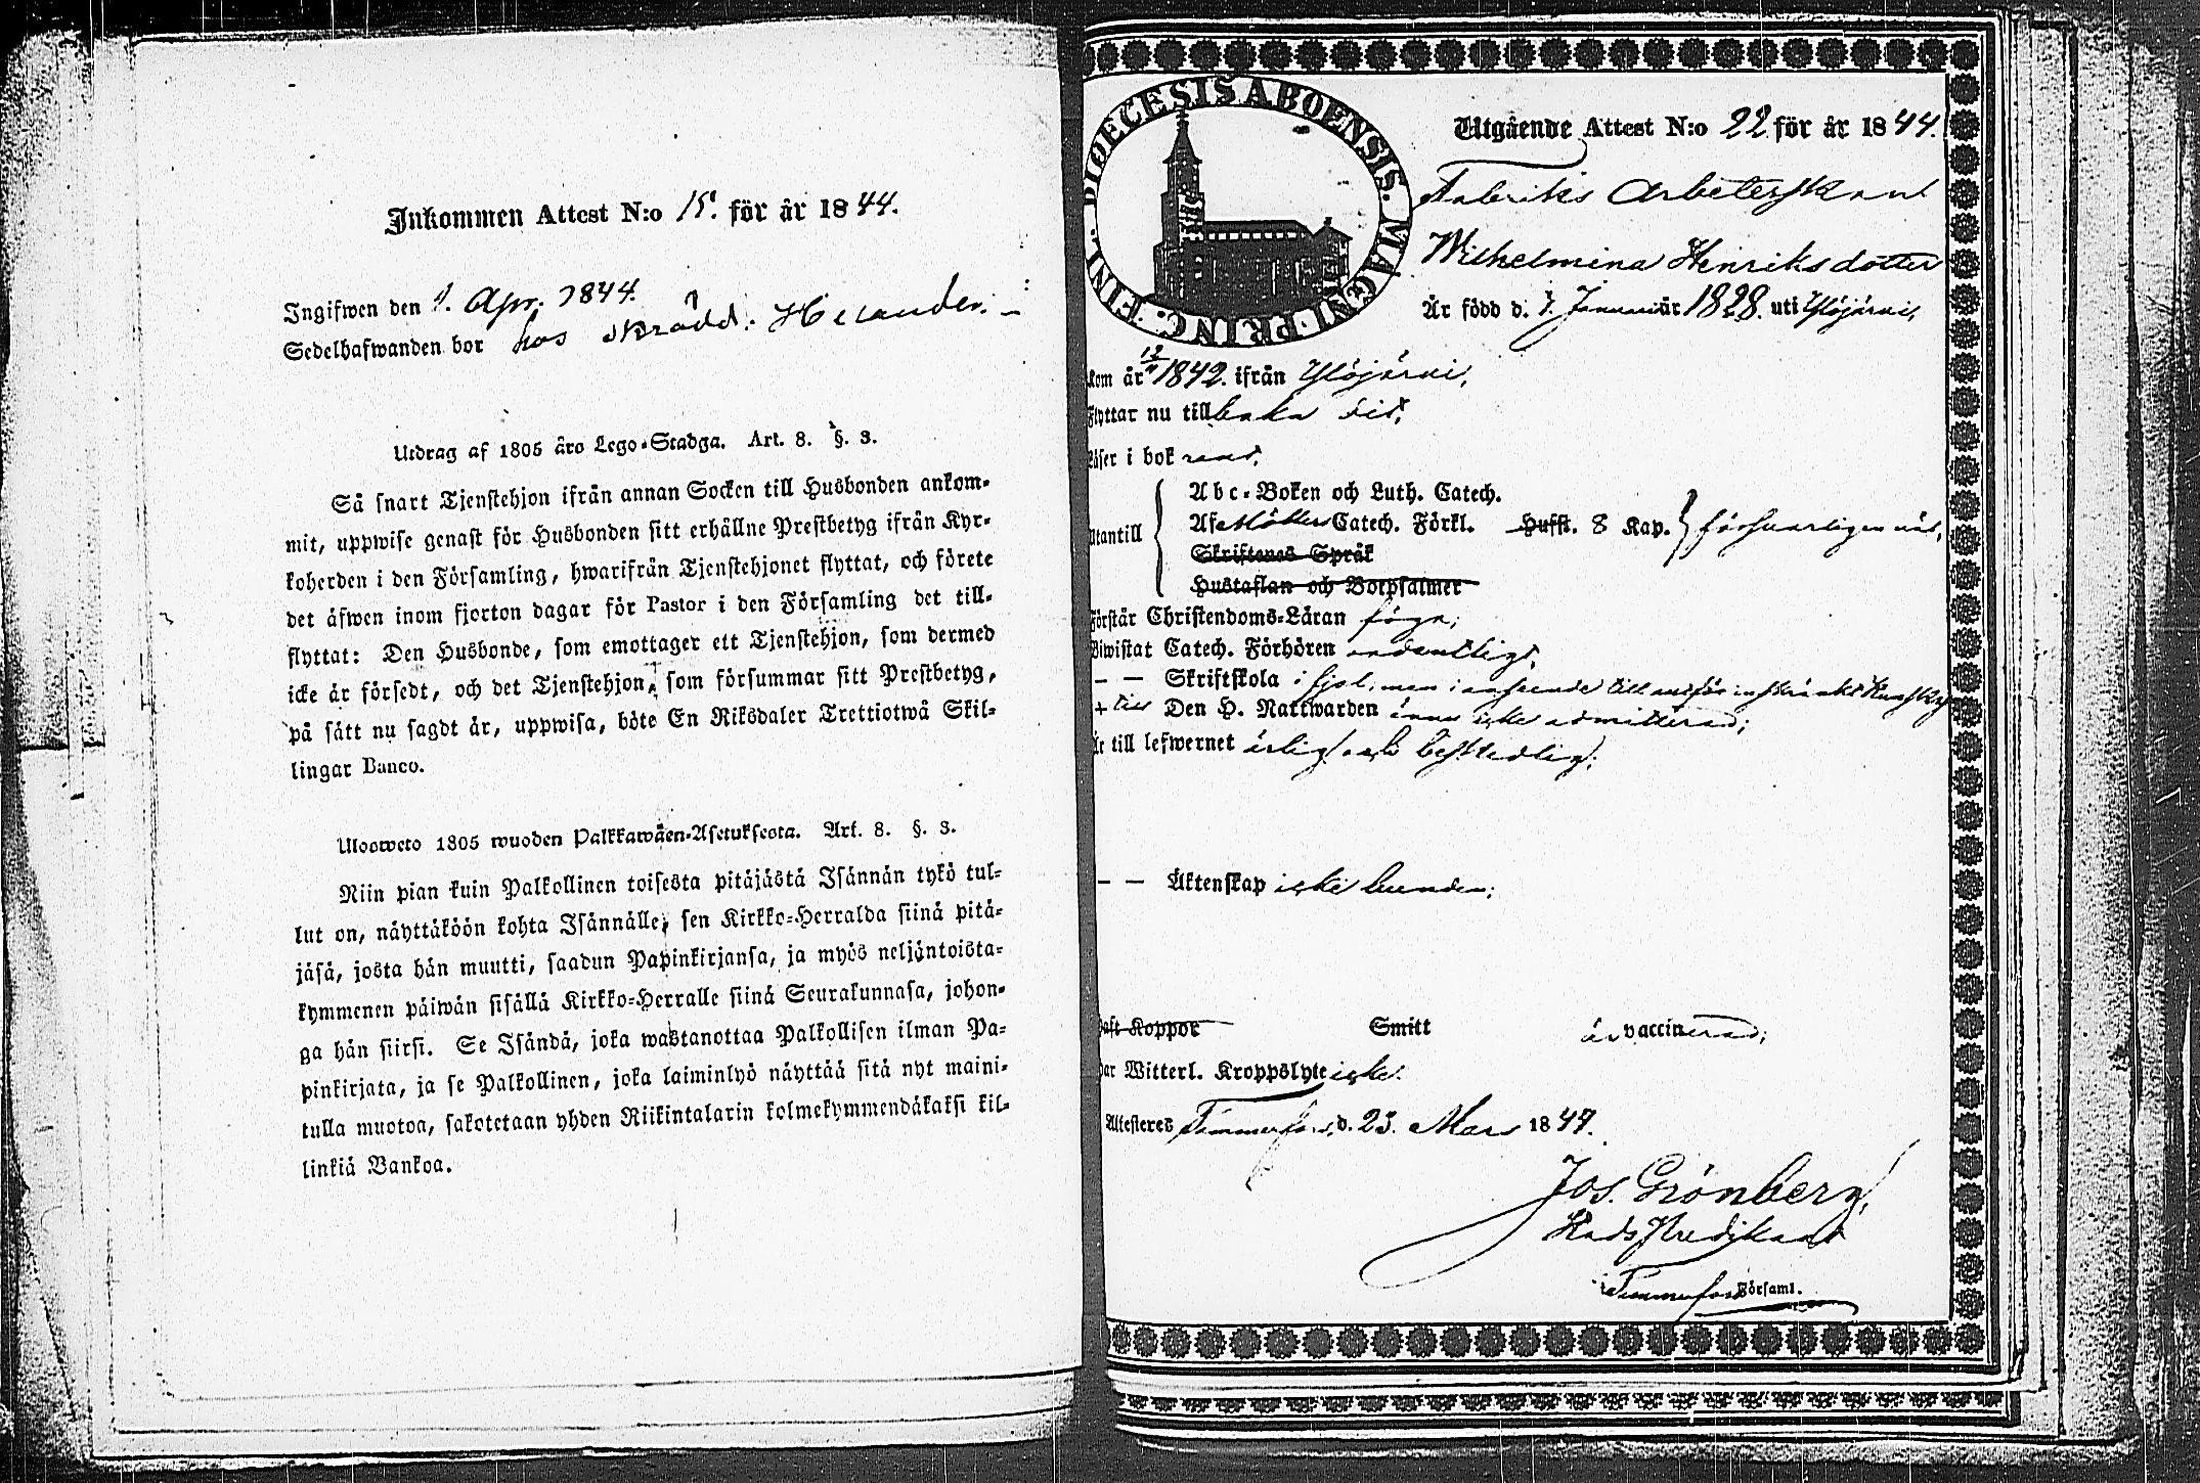 Inkommen Attest N:o 15. för år 1844.
Ingifwen den 1. Apr. 1844.
Sedelhafwanden bor hos skrädd. Helander.
Utdrag af 1805 års Lego-Stadga. Art. 8. §. 3.
Så snart Tjenstehjon ifrån annan Socken till Husbonden ankom-
mit, uppwise genast för Husbonden sitt erhållne Prestbetyg ifrån Kyr-
koherden i den Församling, hwarifrån Tjenstehjonet flyttat, och förete
det äfwen inom fjorton dagar för Pastor i den Församling det till-
flyttat: Den Husbonde, som emottager ett Tjenstehjon, som dermed
icke är försedt, och det Tjenstehjon, som försummar sitt Prestbetyg,
på sätt nu sagdt är, uppwisa, böte En Riksdaler Trettiotwå Skil-
lingar Banco.
Ulosweto 1805 wuoden Palkkawäen-Asetuksesta. Art. 8. §. 3.
Niin pian kuin Palkollinen toisesta pitäjästä Isännän tykö tul-
lut on, näyttäköön kohta Isännälle, sen Kirkko-Herralda siinä pitä-
jäsä, josta hän muutti, saadun Papinkirjansa, ja myös neljäntoista-
kymmenen päiwän sisällä Kirkko-Herralle siinä Seurakunnasa, johon-
ga hän siirsi. Se Isändä, joka wastanottaa Palkollisen ilman Pa-
pinkirjata, ja se Palkollinen, joka laiminlyö näyttää sitä nyt maini-
tulla muotoa, sakotetaan yhden Riikintalarin kolmekymmendäkaksi kil-
linkiä Bankoa.
DIOECESIS ABOENSIS. MAGNI PRINC. FINL.
Utgående Attest N:o 22 för år 1844.
Fabriks Arbeterskan
Wilhelmina Henriksdotter
Är född d. 7. Januari år 1828. uti Ylöjärvi,
kom år 1842. ifrån Ylöjärvi,
Flyttar nu tillbaka dit,
Läser i bok rent,
Abc-Boken och Luth. Catech.
Utantill Af Möllers Catech. Förkl. Hufst. 8 Kap. } försvarligen väl,
Skriftenes Språk
Hustaflan och Botpsalmer
Förstår Christendoms-Läran föga;
Biwistat Catech. Förhören ordentligt,
— — Skriftskola i fjol, men i anseende till
+ till Den H. Nattwarden ännu icke admitterad;
Är till lefwernet ärlig och beskedlig;
— — Äktenskap icke bunden;
Haft Koppor Smitt är vaccinerad;
Har Witterl. Kroppslyte icke.
Attesteres Tammerfors, d. 23. Mars 1844.
Jos. Grönberg,
Stads Predikant
i Tammerfors Församl.